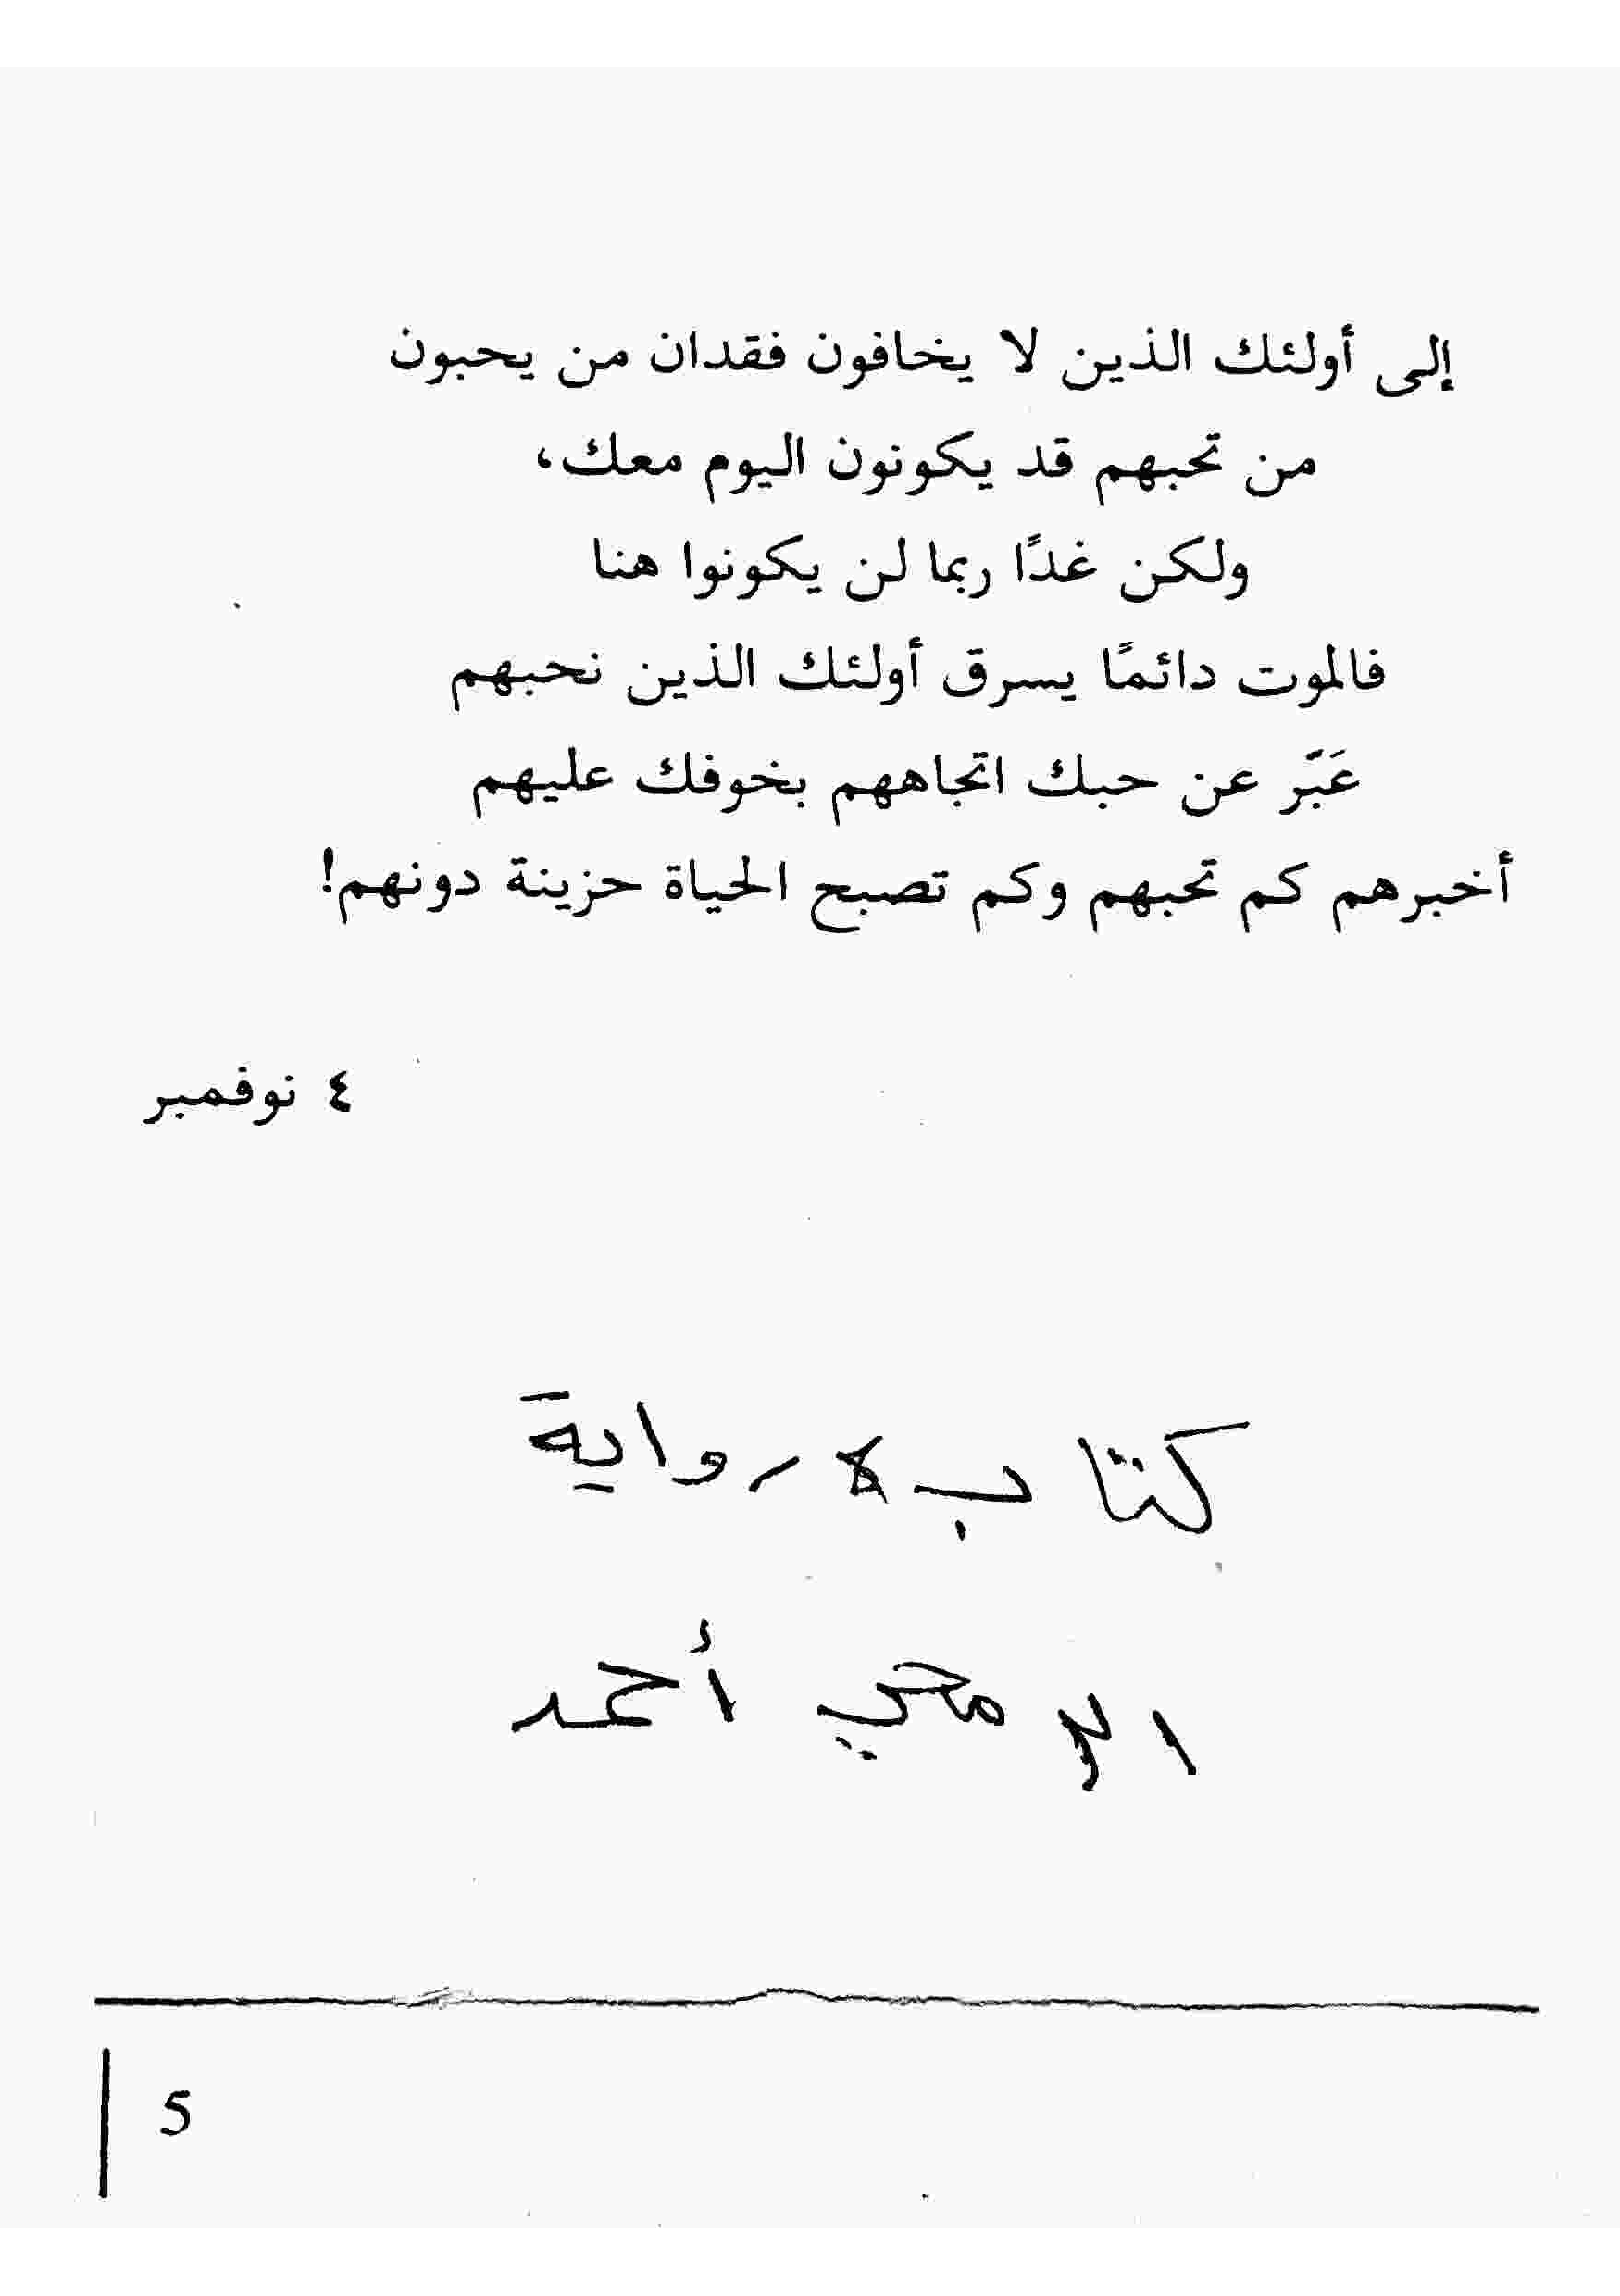 إلى أولئك الذين لا يخافون فقدان من يحبون
من تحبهم قد يكونون اليوم معك،
ولكن غدًا ربما لن يكونوا هنا
فالموت دائمًا يسرق أولئك الذين نحبهم
عَبّر عن حبك اتجاههم بخوفك عليهم
أخبرهم كم تحبهم وكم تصبح الحياة حزينة دونهم!
٤ نوفمبر
كتاب رواية
أحمد
5